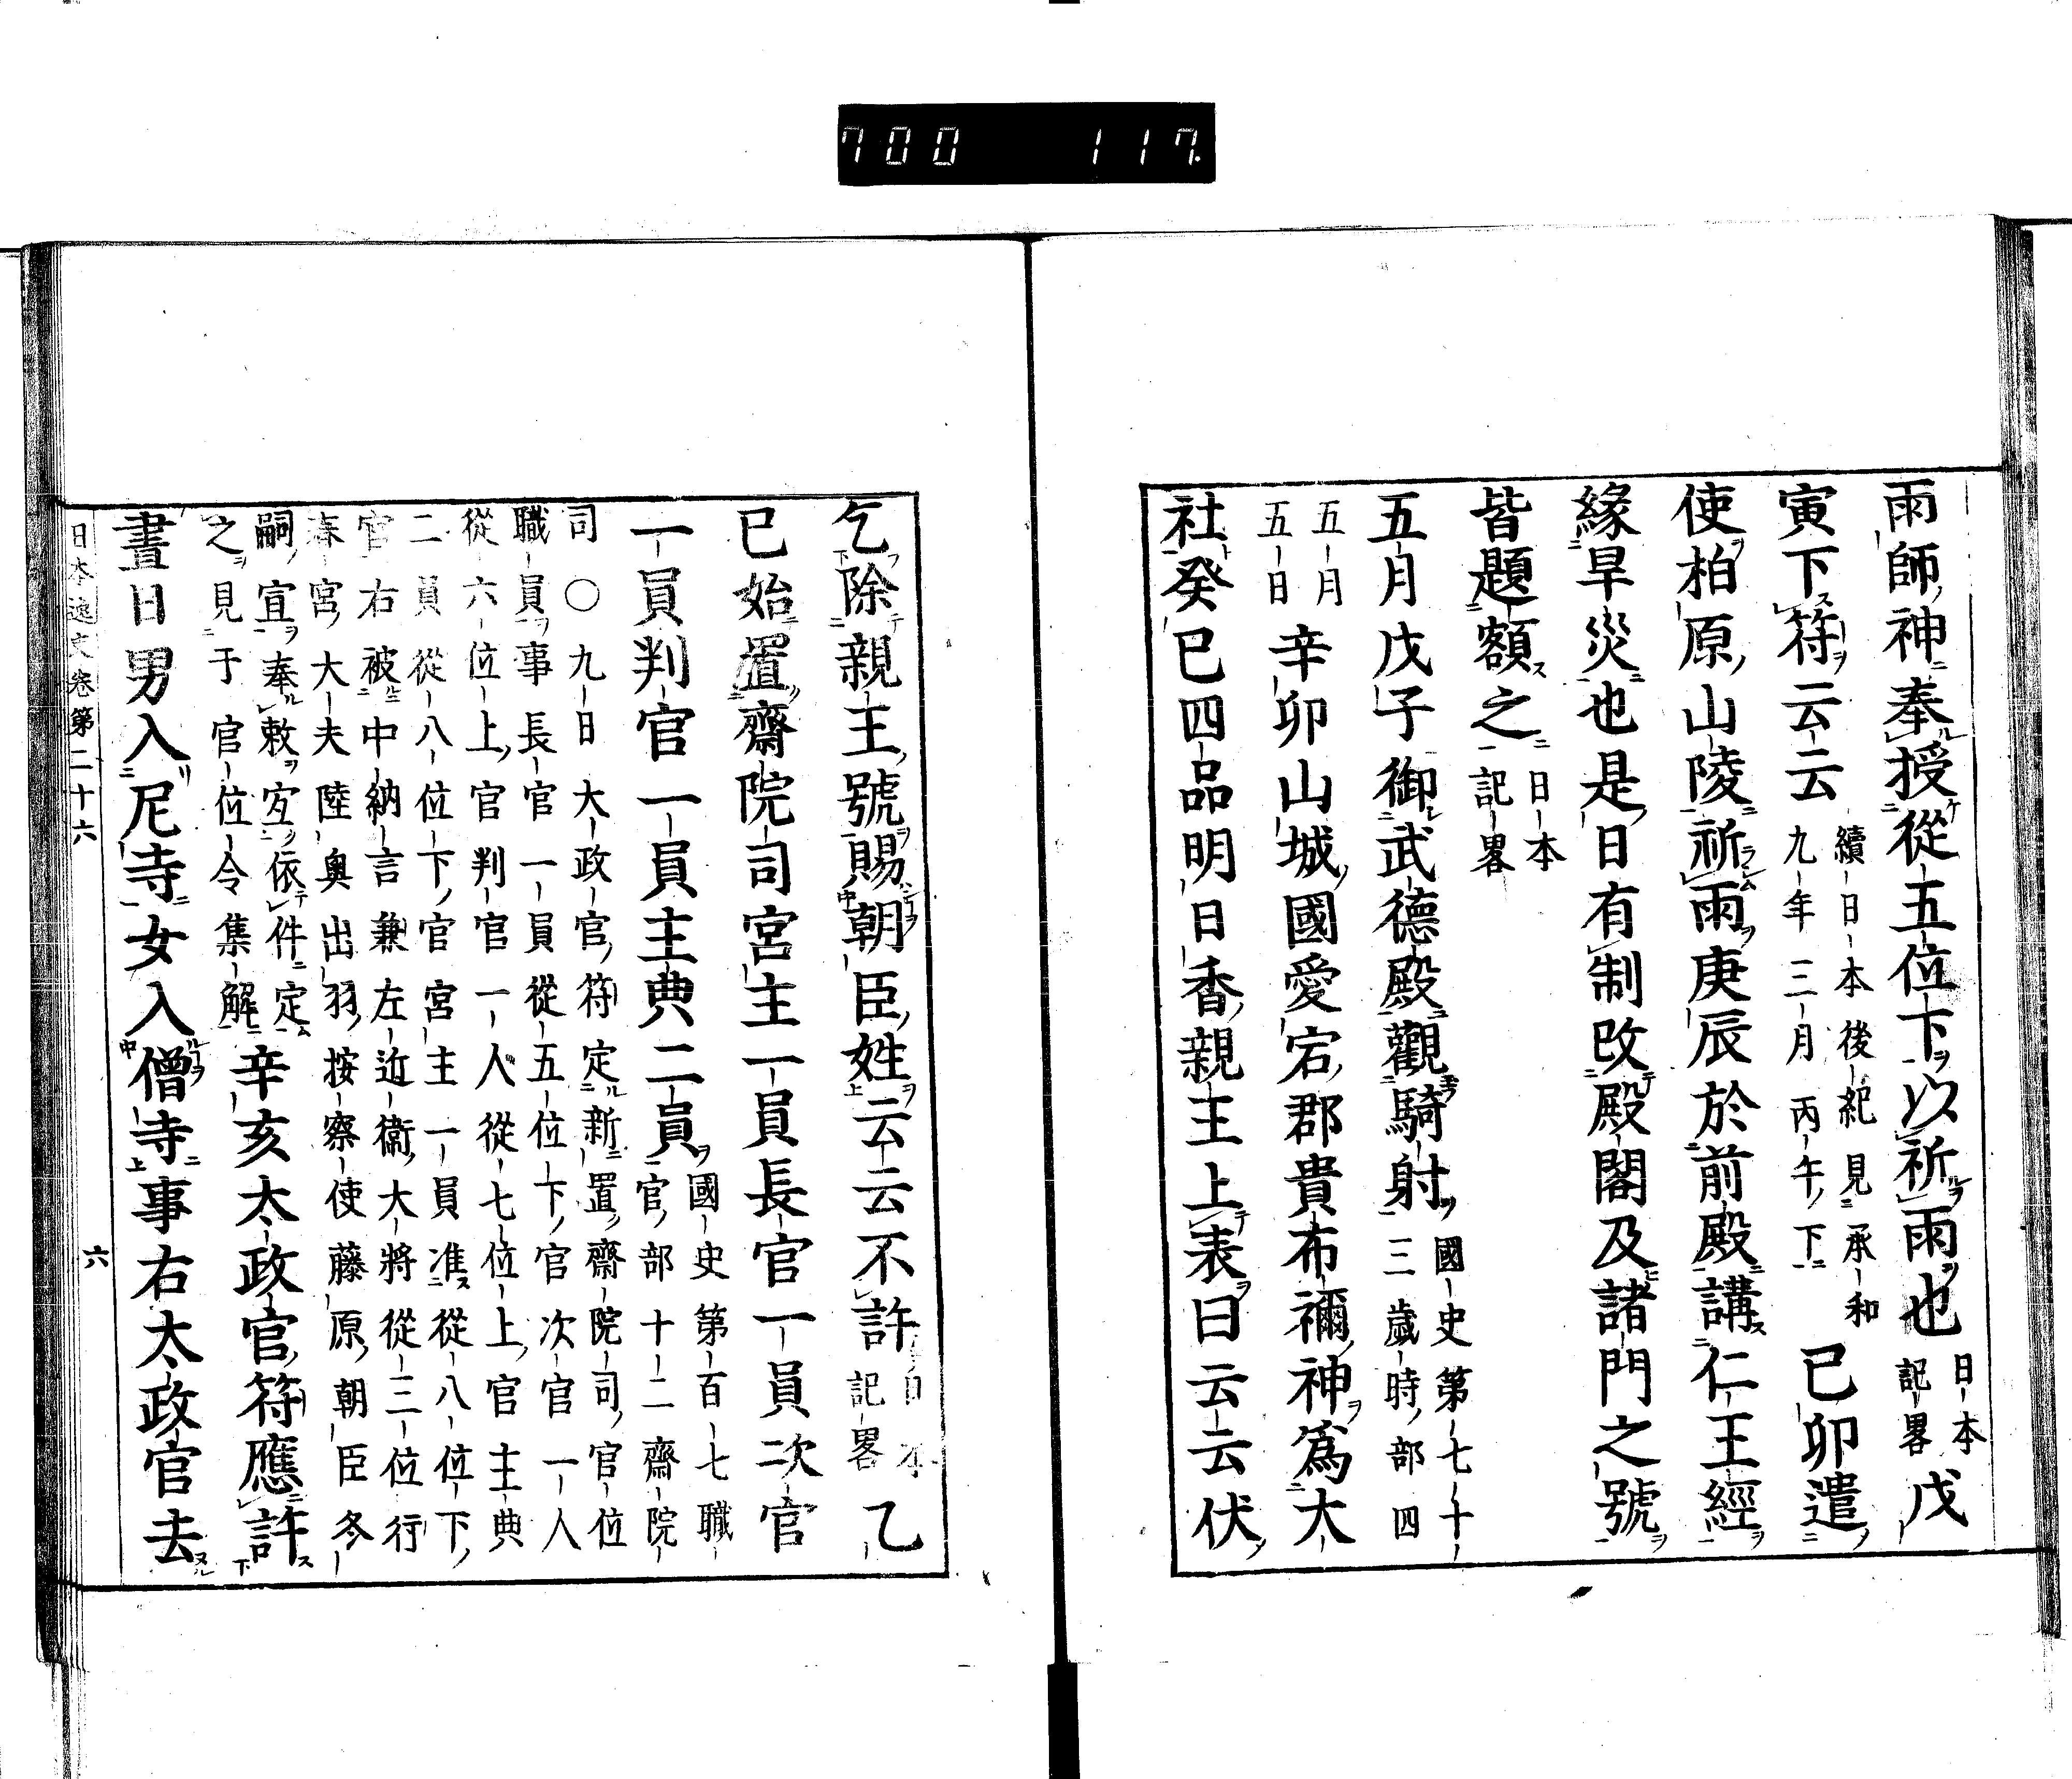 700 117
雨師神奉授從五位下以祈雨也 日本記畧 戊
寅下符云云 續日本後紀見承和九年三月丙午下 己卯遣
使柏原山陵祈雨庚辰於前殿講仁王經
緣旱災也是日有制改殿閣及諸門之號
皆題額之 日本記畧
五月戊子御武德殿觀騎射 國史第七十三歲時部四
五月五日 辛卯山城國愛宕郡貴布禰神爲大
社癸巳四品明日香親王上表曰云云伏
乞除親王號賜朝臣姓云云不許 日本記畧 乙
巳始置齋院司宮主一員長官一員次官
一員判官一員主典二員 國史第百七職官部十二齋院
司○九日大政官符定新置齋院司官位
職員事長官一員從五位下官次官一人
從六位上官判官一人從七位上官主典
二員從八位下官宮主一員准從八位下
官右被中納言兼左近衞大將從三位行
春宮大夫陸奧出羽按察使藤原朝臣冬
嗣宣奉敕宜依件定
之見于官位令集解 辛亥太政官符應許
晝日男入尼寺女入僧寺事右太政官去
日本逸史卷第二十六 六